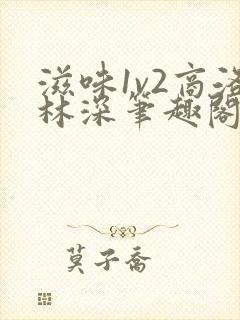 滋味1v2高洛
林深笔趣阁
莫子乔